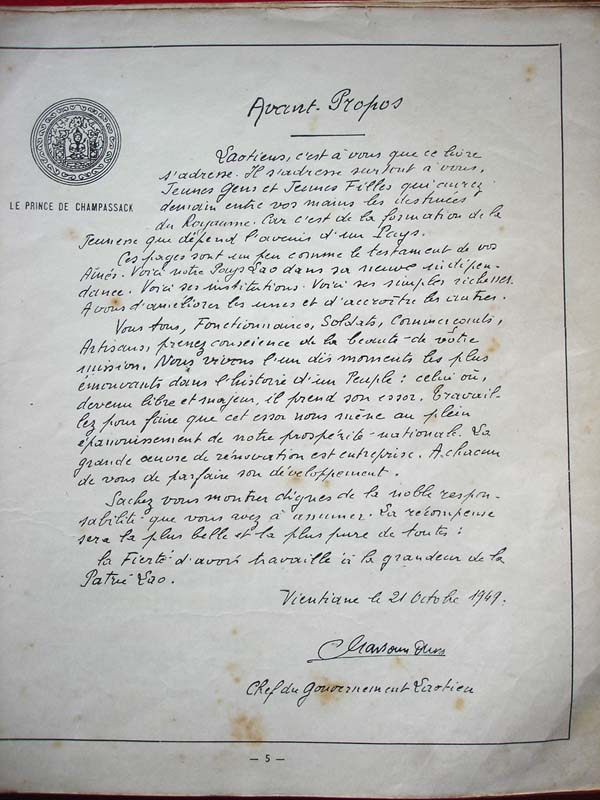 Avant-Propos
LE PRINCE DE CHAMPASSACK
Laotiens, c'est à vous que ce livre
s'adresse. Il s'adresse surtout à vous,
Jeunes Gens et Jeunes Filles qui aurez
demain entre vos mains les destinées
du Royaume. Car c'est de la formation de la
Jeunesse que dépend l'avenir d'un Pays.
Ces pages sont un peu comme le testament de vos
Aînés. Voici notre Pays Lao dans sa neuve indépen-
dance. Voici ses institutions. Voici ses simples richesses.
A vous d'améliorer les unes et d'accroître les autres.
Vous tous, Fonctionnaires, Soldats, Commerçants,
Artisans, prenez conscience de la beauté de vôtre
mission. Nous vivons l'un des moments les plus
émouvants dans l'histoire d'un Peuple : celui où,
devenu libre et majeur, il prend son essor. Travail-
lez pour faire que cet essor nous mène au plein
épanouissement de notre prospérité nationale. La
grande œuvre de rénovation est entreprise. A chacun
de vous de parfaire son développement.
Sachez vous montrer dignes de la noble respon-
sabilité que vous avez à assumer. La récompense
sera la plus belle et la plus pure de toutes :
la Fierté d'avoir travaillé à la grandeur de la
Patrie Lao.
Vientiane le 21 Octobre 1949.
Chef du Gouvernement Laotien
— 5 —